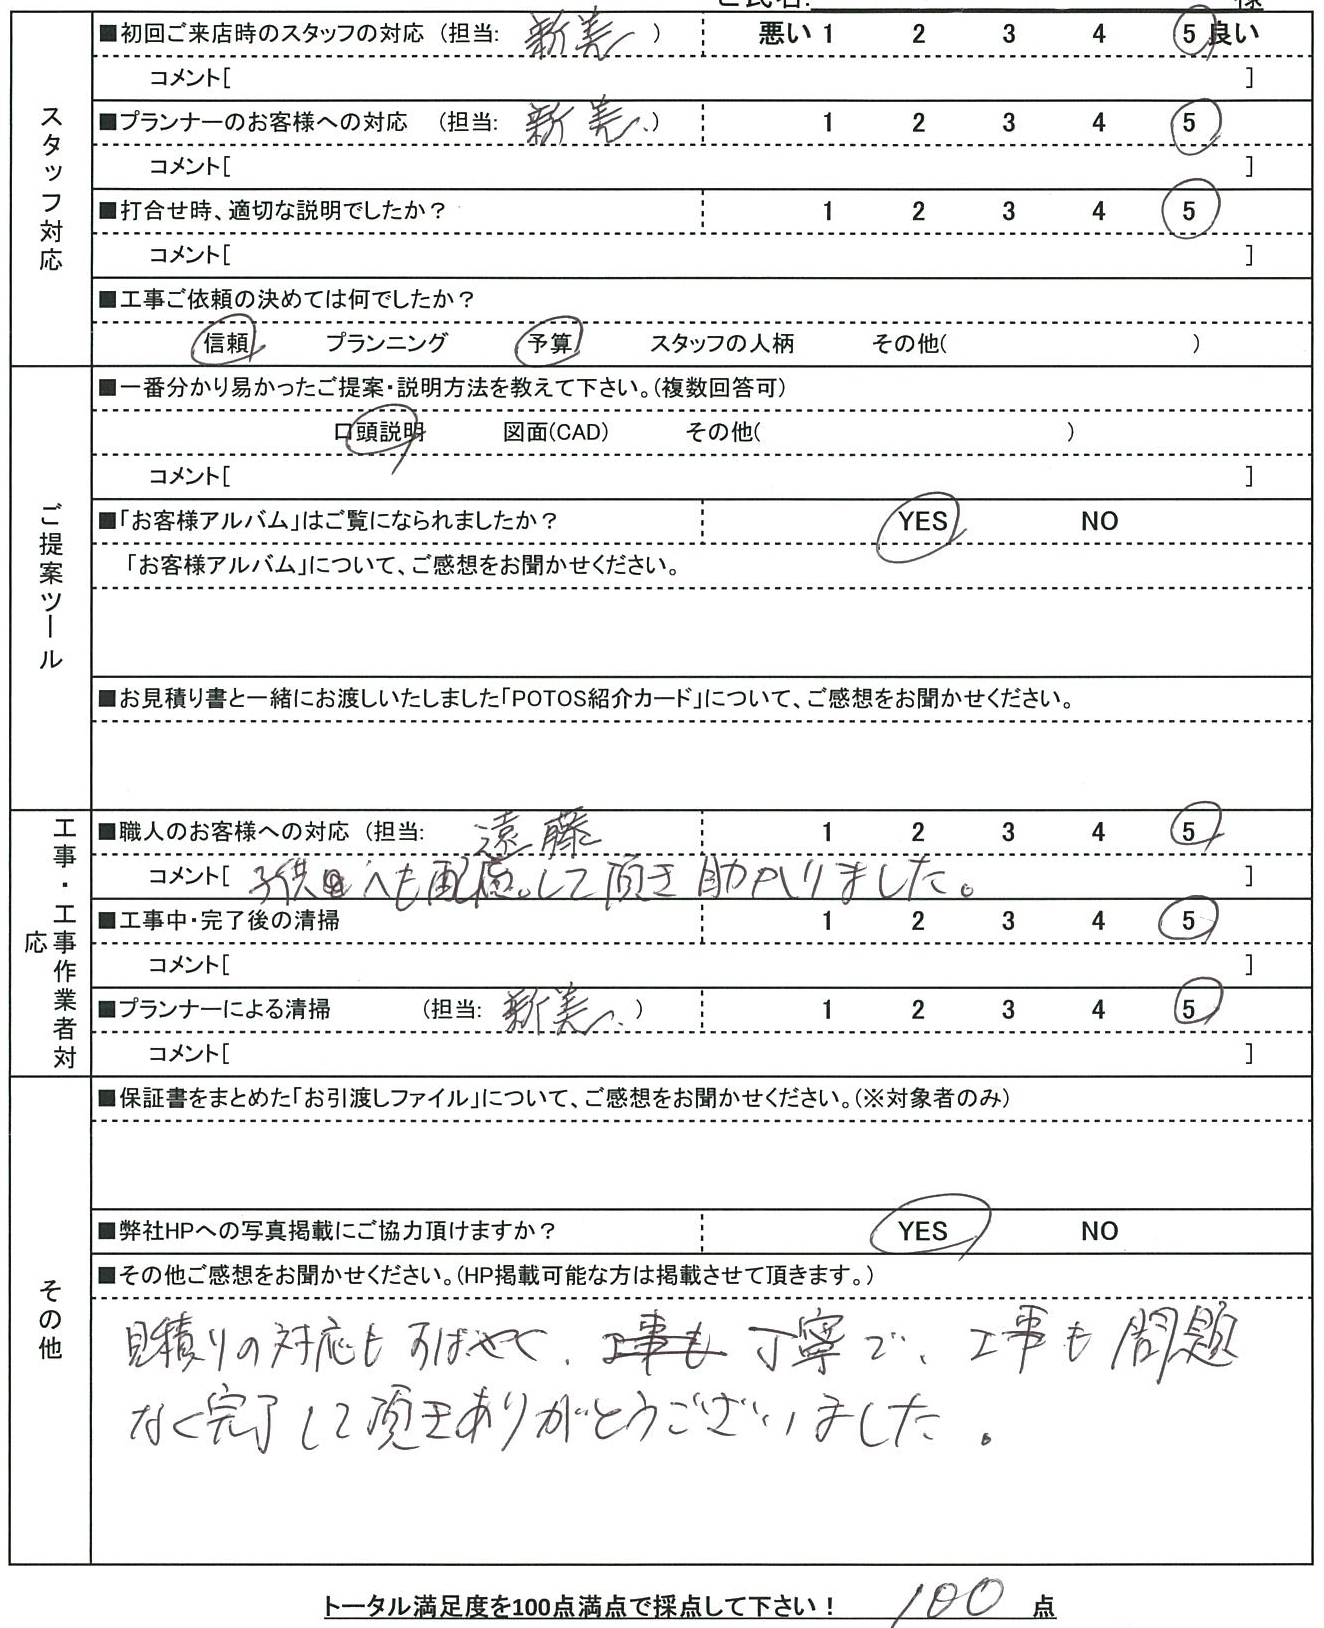 ご氏名: 様
■初回ご来店時のスタッフの対応 (担当: 新美 ) 悪い 1 2 3 4 5 良い
コメント[ ]
スタッフ対応
■プランナーのお客様への対応 (担当: 新美 ) 1 2 3 4 5
コメント[ ]
■打合せ時、適切な説明でしたか? 1 2 3 4 5
コメント[ ]
■工事ご依頼の決めては何でしたか?
信頼 プランニング 予算 スタッフの人柄 その他( )
ご提案ツール
■一番分かり易かったご提案・説明方法を教えて下さい。(複数回答可)
口頭説明 図面(CAD) その他( )
コメント[ ]
■「お客様アルバム」はご覧になられましたか? YES NO
「お客様アルバム」について、ご感想をお聞かせください。
■お見積り書と一緒にお渡しいたしました「POTOS紹介カード」について、ご感想をお聞かせください。
工事・工事作業者対応
■職人のお客様への対応 (担当: 遠藤 1 2 3 4 5
コメント[ 子供へも配慮して頂き助かりました。 ]
■工事中・完了後の清掃 1 2 3 4 5
コメント[ ]
■プランナーによる清掃 (担当: 新美 ) 1 2 3 4 5
コメント[ ]
その他
■保証書をまとめた「お引渡しファイル」について、ご感想をお聞かせください。(※対象者のみ)
■弊社HPへの写真掲載にご協力頂けますか? YES NO
■その他ご感想をお聞かせください。(HP掲載可能な方は掲載させて頂きます。)
見積りの対応もすばやく、工事も丁寧で、工事も問題
なく完了して頂きありがとうございました。
トータル満足度を100点満点で採点して下さい! 100 点